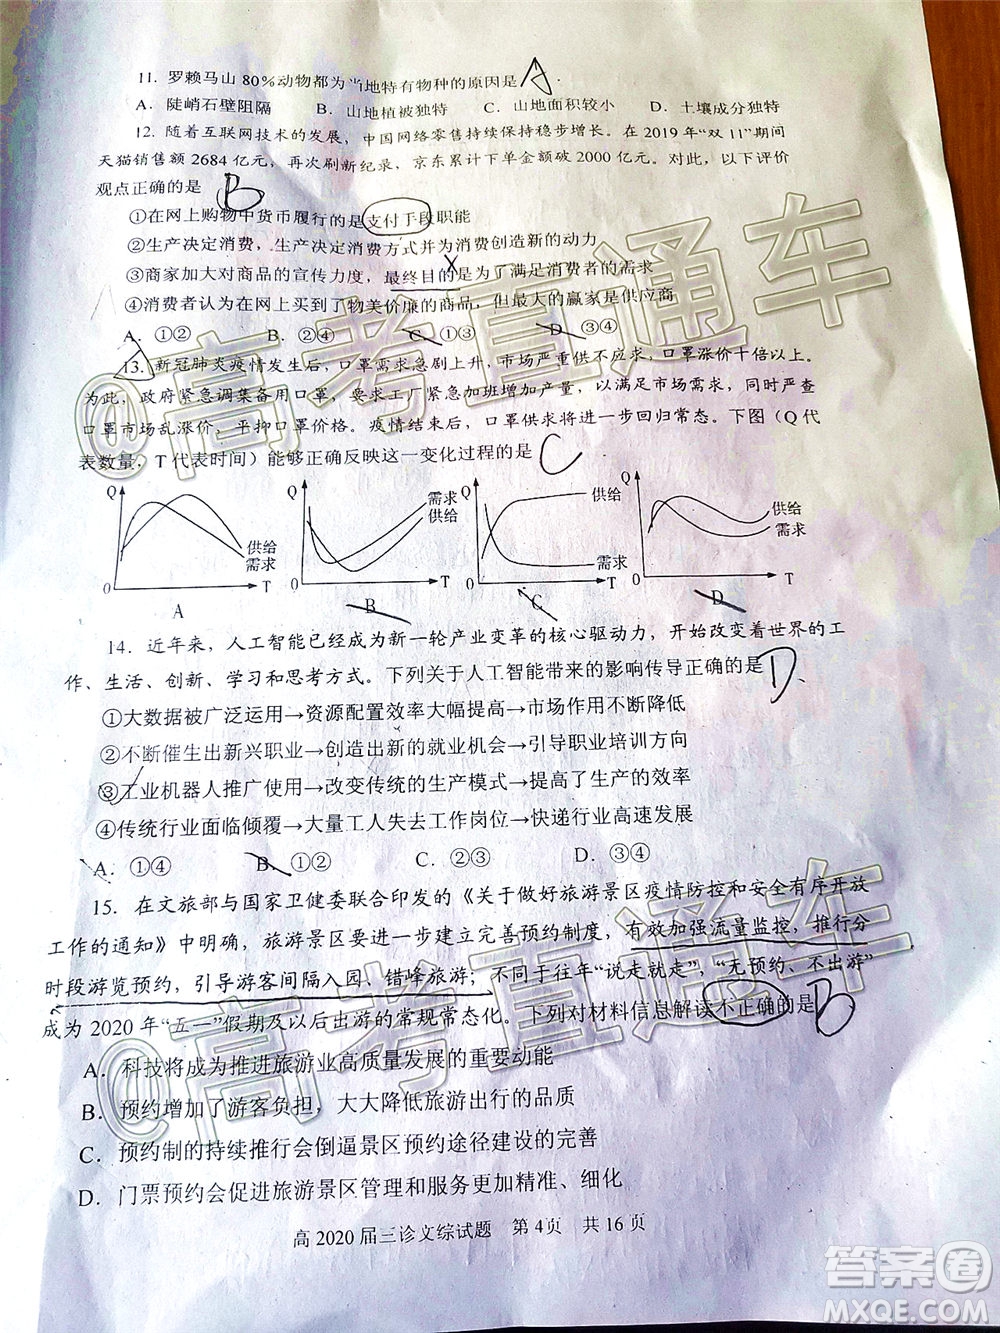 11．罗赖马山 80%动物都为当地特有物种的原因是 A
A．陡峭石壁阻隔 B．山地植被独特 C．山地面积较小 D．土壤成分独特
12．随着互联网技术的发展，中国网络零售持续保持稳步增长。在 2019 年“双 11”期间
天猫销售额 2684 亿元，再次刷新纪录，京东累计下单金额破 2000 亿元。对此，以下评价
观点正确的是 B
①在网上购物中货币履行的是支付手段职能
②生产决定消费，生产决定消费方式并为消费创造新的动力
③商家加大对商品的宣传力度，最终目的是为了满足消费者的需求
④消费者认为在网上买到了物美价廉的商品，但最大的赢家是供应商
A．①② B．②④ C．①③ D．③④
13．新冠肺炎疫情发生后，口罩需求急剧上升，市场严重供不应求，口罩涨价十倍以上。
为此，政府紧急调集备用口罩，要求相关工厂紧急加班增加产量，以满足市场需求，同时严惩
口罩市场乱涨价，平抑口罩价格。疫情结束后，口罩供求将进一步回归常态。下图（Q 代
表数量，T 代表时间）能够正确反映这一变化过程的是 C
Q 供给 需求 0 T A
Q 需求 供给 0 T B
Q 供给 需求 0 T C
Q 供给 需求 0 T D
14．近年来，人工智能已经成为新一轮产业变革的核心驱动力，开始改变着世界的工
作、生活、创新、学习和思考方式。下列关于人工智能带来的影响传导正确的是 D
①大数据被广泛运用→资源配置效率大幅提高→市场作用不断降低
②不断催生出新兴职业→创造出新的就业机会→引导职业培训方向
③工业机器人推广使用→改变传统的生产模式→提高了生产的效率
④传统行业面临倾覆→大量工人失去工作岗位→快递行业高速发展
A．①④ B．①② C．②③ D．③④
15．在文旅部与国家卫健委联合印发的《关于做好旅游景区疫情防控和安全有序开放
工作的通知》中明确，旅游景区要进一步建立完善预约制度，有效加强流量监控，推行分
时段游览预约，引导游客间隔入园、错峰旅游；不同于往年“说走就走”，“无预约、不出游”
成为 2020 年“五一”假期及以后出游的常规常态化。下列对材料信息解读不正确的是 B
A．科技将成为推进旅游业高质量发展的重要动能
B．预约增加了游客负担，大大降低旅游出行的品质
C．预约制的持续推行会倒逼景区预约途径建设的完善
D．门票预约会促进旅游景区管理和服务更加精准、细化
高 2020 届三诊文综试题 第 4页 共 16 页
@高考直通车
@高考直通车
答案圈
MXQE.COM